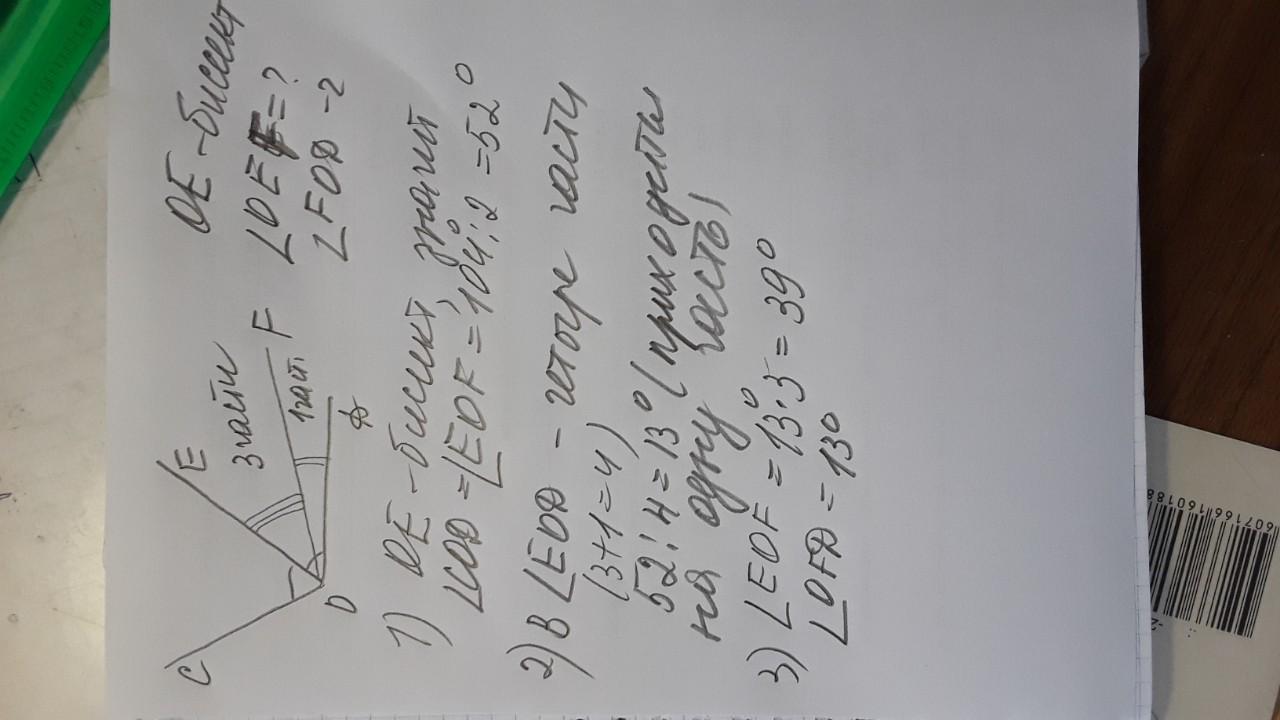 OE - бисект
∠OEF = ?
∠FOD - ?
C
E
3 части
F
1 част.
D
O
1) OE - бисект, значит
∠COD = ∠EOF = 104° : 2 = 52°
2) В ∠EOD - четыре части
(3+1=4)
52 : 4 = 13° (приходиться
на одну часть)
3) ∠EOF = 13° · 3 = 39°
∠OFD = 13°